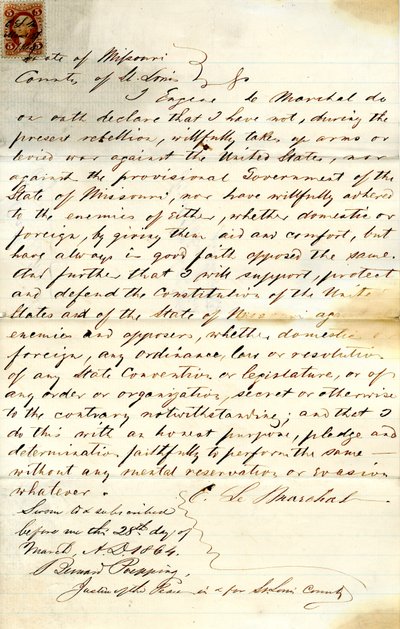 State of Missouri
County of St. Louis } ss
I Eugene Le Marchal do
on oath declare that I have not, during the
present rebellion, willfully taken up arms or
levied war against the United States, nor
against the provisional Government of the
State of Missouri, nor have willfully adhered
to the enemies of either, whether domestic or
foreign, by giving them aid and comfort, but
have always in good faith opposed the same.
And further that I will support, protect
and defend the Constitution of the United
States and of the State of Missouri
enemies and opposers, whether domestic
foreign, any ordinance, law or resolution
of any State Convention or legislature, or of
any order or organization, secret or otherwise
to the contrary notwithstanding; and that I
do this with an honest purpose, pledge and
determination faithfully to perform the same —
without any mental reservation or evasion
whatever.
E Le Marchal
Sworn to & subscribed
before me this 28th day of
March A.D. 1864.
Bernard Poepping,
Justice of the Peace in & for St. Louis County